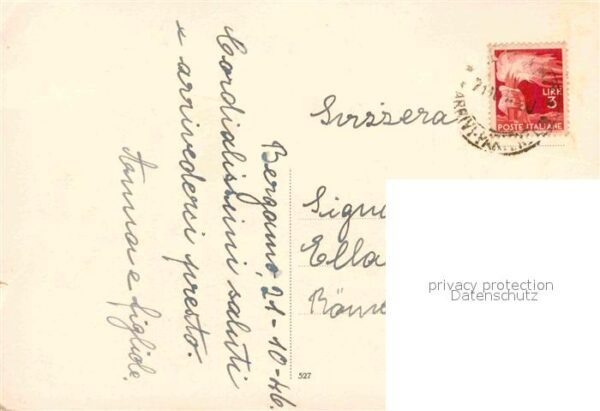 Bergamo, 21-10-46.
Cordialissimi saluti
e arrivederci presto.
Anna e figliole.
527
Svizzera
Ella
LIRE
3
POSTE ITALIANE
privacy protection
Datenschutz